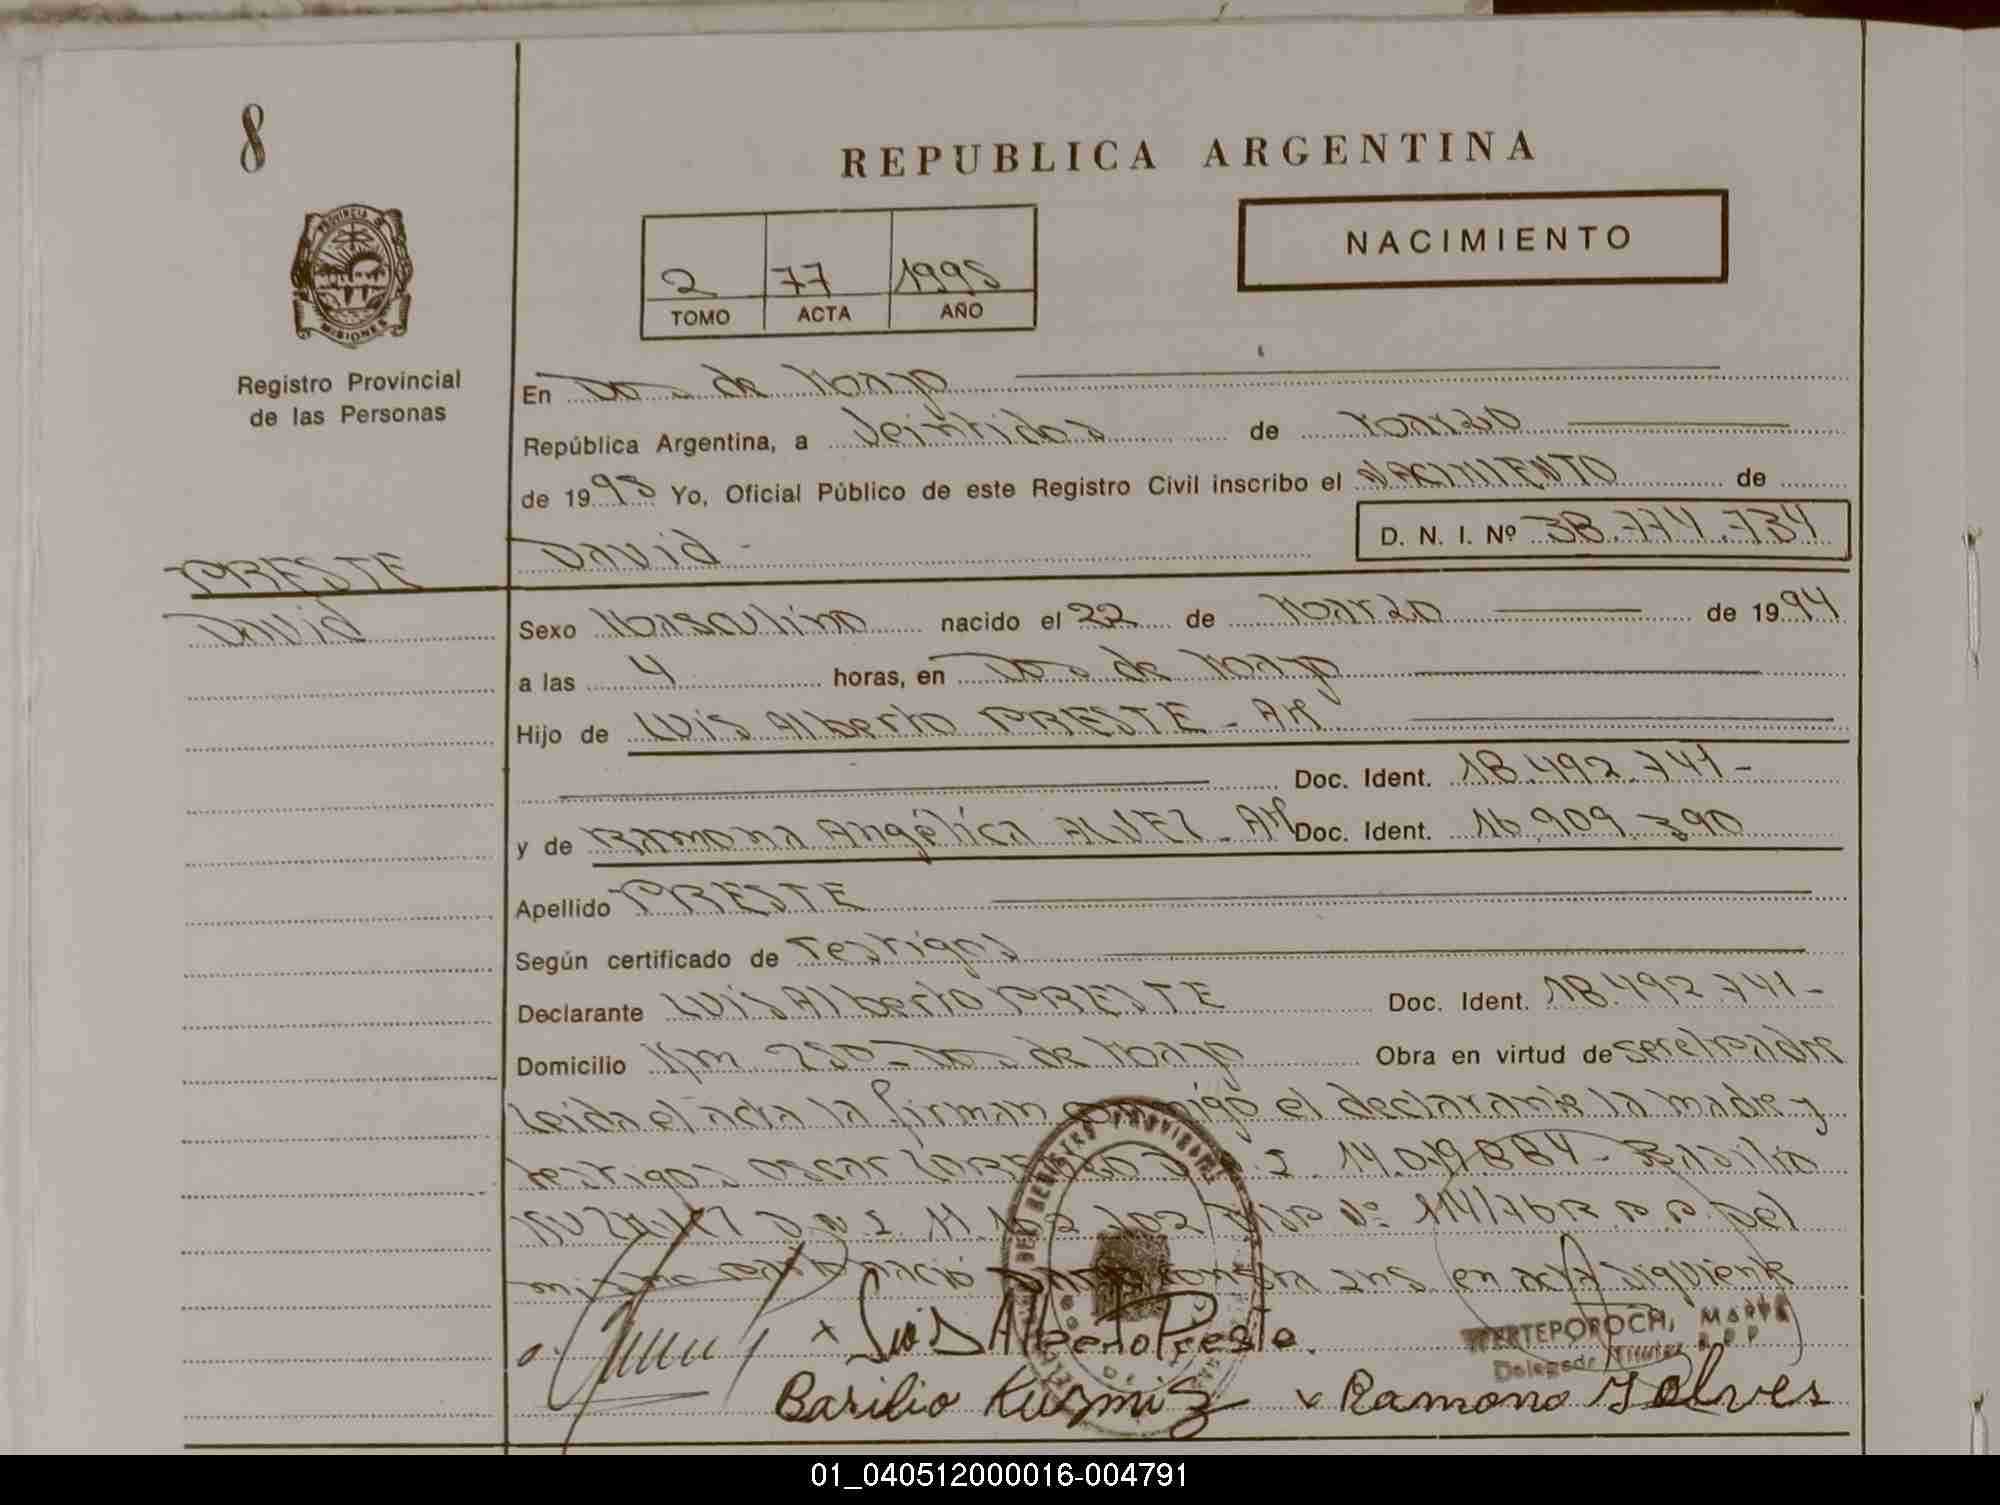 8
REPUBLICA ARGENTINA
PROVINCIA DE
MISIONES
2 77 1995
TOMO ACTA AÑO
NACIMIENTO
Registro Provincial
de las Personas
En Dos de Mayo
República Argentina, a Veintidos de Marzo
de 1995 Yo, Oficial Público de este Registro Civil inscribo el NACIMIENTO de
David - D. N. I. Nº 38.774.734
PRESTE
David
Sexo Masculino nacido el 22 de Marzo de 1994
a las 4 horas, en Dos de Mayo
Hijo de Luis Alberto PRESTE - AR
Doc. Ident. 18.492.741-
y de Ramona Angélica ALVEZ - AR Doc. Ident. 16.909.390
Apellido PRESTE
Según certificado de Testigos
Declarante Luis Alberto PRESTE Doc. Ident. 18.492.741-
Domicilio Km 250 - Dos de Mayo Obra en virtud de ser el padre
Leida el acta la firman conmigo el declarante la madre y
testigos Oscar D.N.I. 14.019.884 - Basilio
D.N.I. 11.162.702 Disp Nº 114/76 R.P.P. Del
mismo en acta siguiente
x Luis Alberto Preste.
MARTA
Delegada Titular R.P.P
Basilio Kuzmiz x Ramona Jalves
01_040512000016-004791